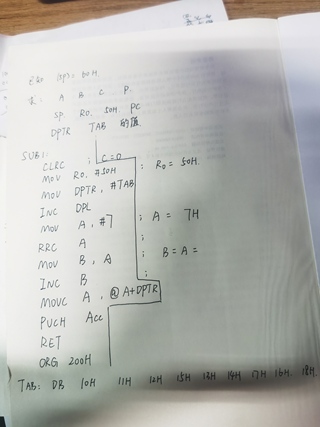 已知 (SP)= 60H.
求: A B C P.
SP. R0. 50H. PC
DPTR TAB 的值
SUB1:
CLRC ; C=0
MOV R0. #50H ; R0= 50H.
MOV DPTR, #TAB
INC DPL
MOV A, #7 ; A = 7H
RRC A ;
MOV B, A ; B=A=
INC B ;
MOVC A, @A+DPTR
PUCH Acc
RET
ORG 200H
TAB: DB 10H 11H 12H 15H 13H 14H 17H 16H. 18H.